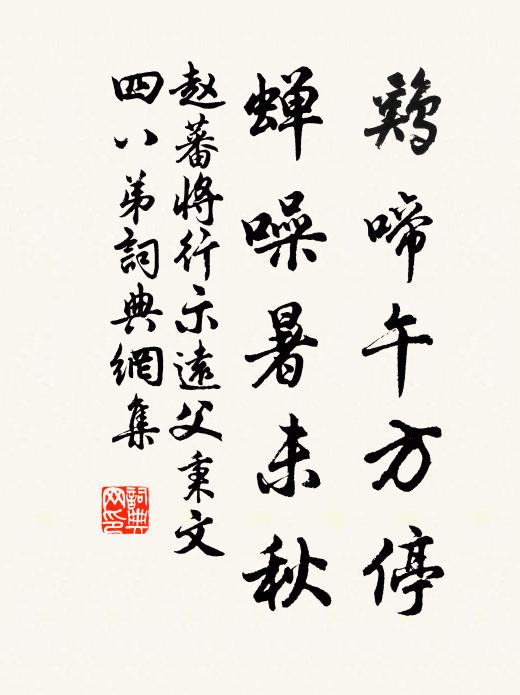 鷄啼午方停
蝉噪暑未秋
赵蕃将行示遠父秉文
四八弟詞典網集
詞典
网印